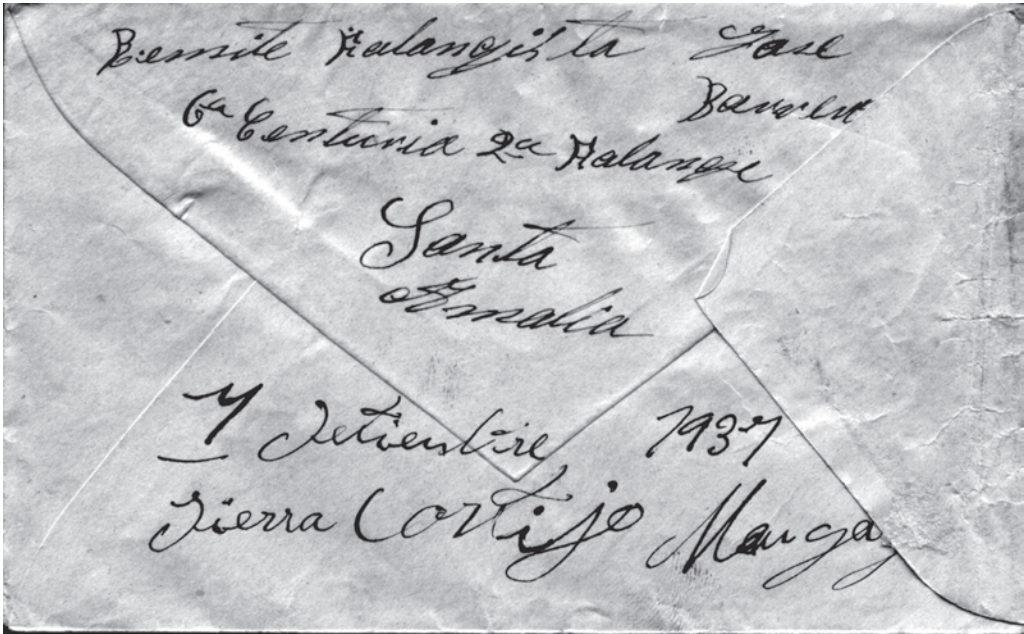 Remite Falangista Jose
6ª Centuria 2ª Falange
Santa
Amalia
7 Setienbre 1937
Sierra Cortijo Manga